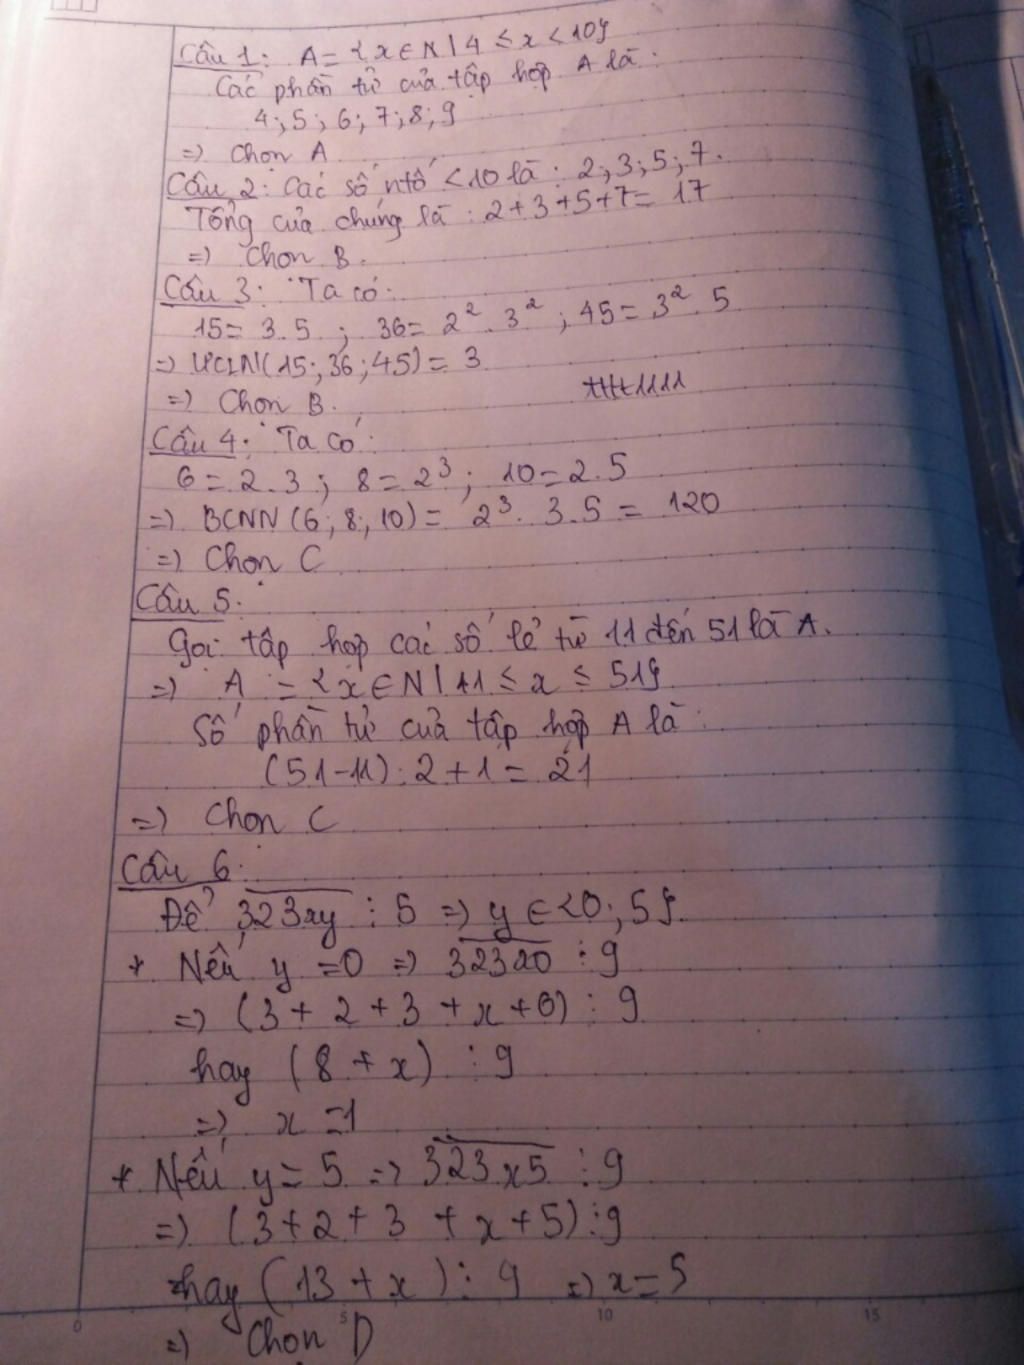 Câu 1: A = {x ∈ N | 4 ≤ x < 10}
Các phần tử của tập hợp A là:
4; 5; 6; 7; 8; 9
=> Chọn A
Câu 2: Các số ntố < 10 là: 2; 3; 5; 7.
Tổng của chúng là: 2+3+5+7 = 17
=> Chọn B.
Câu 3: Ta có:
15 = 3.5 ; 36 = 2². 3² ; 45 = 3². 5
=> ƯCLN(15; 36; 45) = 3
=> Chọn B.
Câu 4: Ta có:
6 = 2.3 ; 8 = 2³ ; 10 = 2.5
=> BCNN (6; 8; 10) = 2³. 3.5 = 120
=> Chọn C
Câu 5:
Gọi tập hợp các số lẻ từ 11 đến 51 là A.
=> A = {x ∈ N | 11 ≤ x ≤ 51}
Số phần tử của tập hợp A là:
(51-11):2+1 = 21
=> Chọn C
Câu 6:
Để 323xy ⋮ 5 => y ∈ {0; 5}.
* Nếu y = 0 => 323x0 ⋮ 9
=> (3+2+3+x+0) ⋮ 9
hay (8+x) ⋮ 9
=> x = 1
* Nếu y = 5 => 323x5 ⋮ 9
=> (3+2+3+x+5) ⋮ 9
hay (13+x) ⋮ 9 => x = 5
0 5 10 15
=> Chọn D